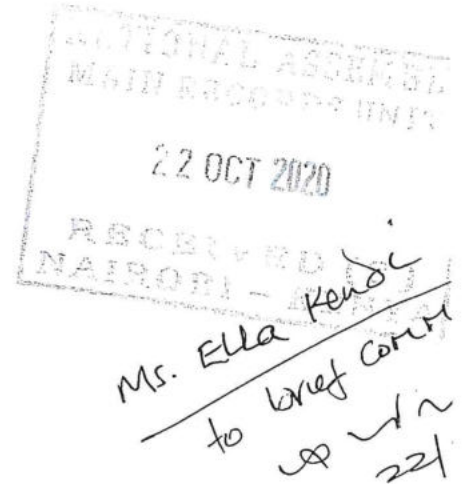 NATIONAL ASSEMBL
MAIN RECORDS UNIT
22 OCT 2020
RECEIVED
NAIROBI - 
Ms. Ella Kendi
to brief comm
22/